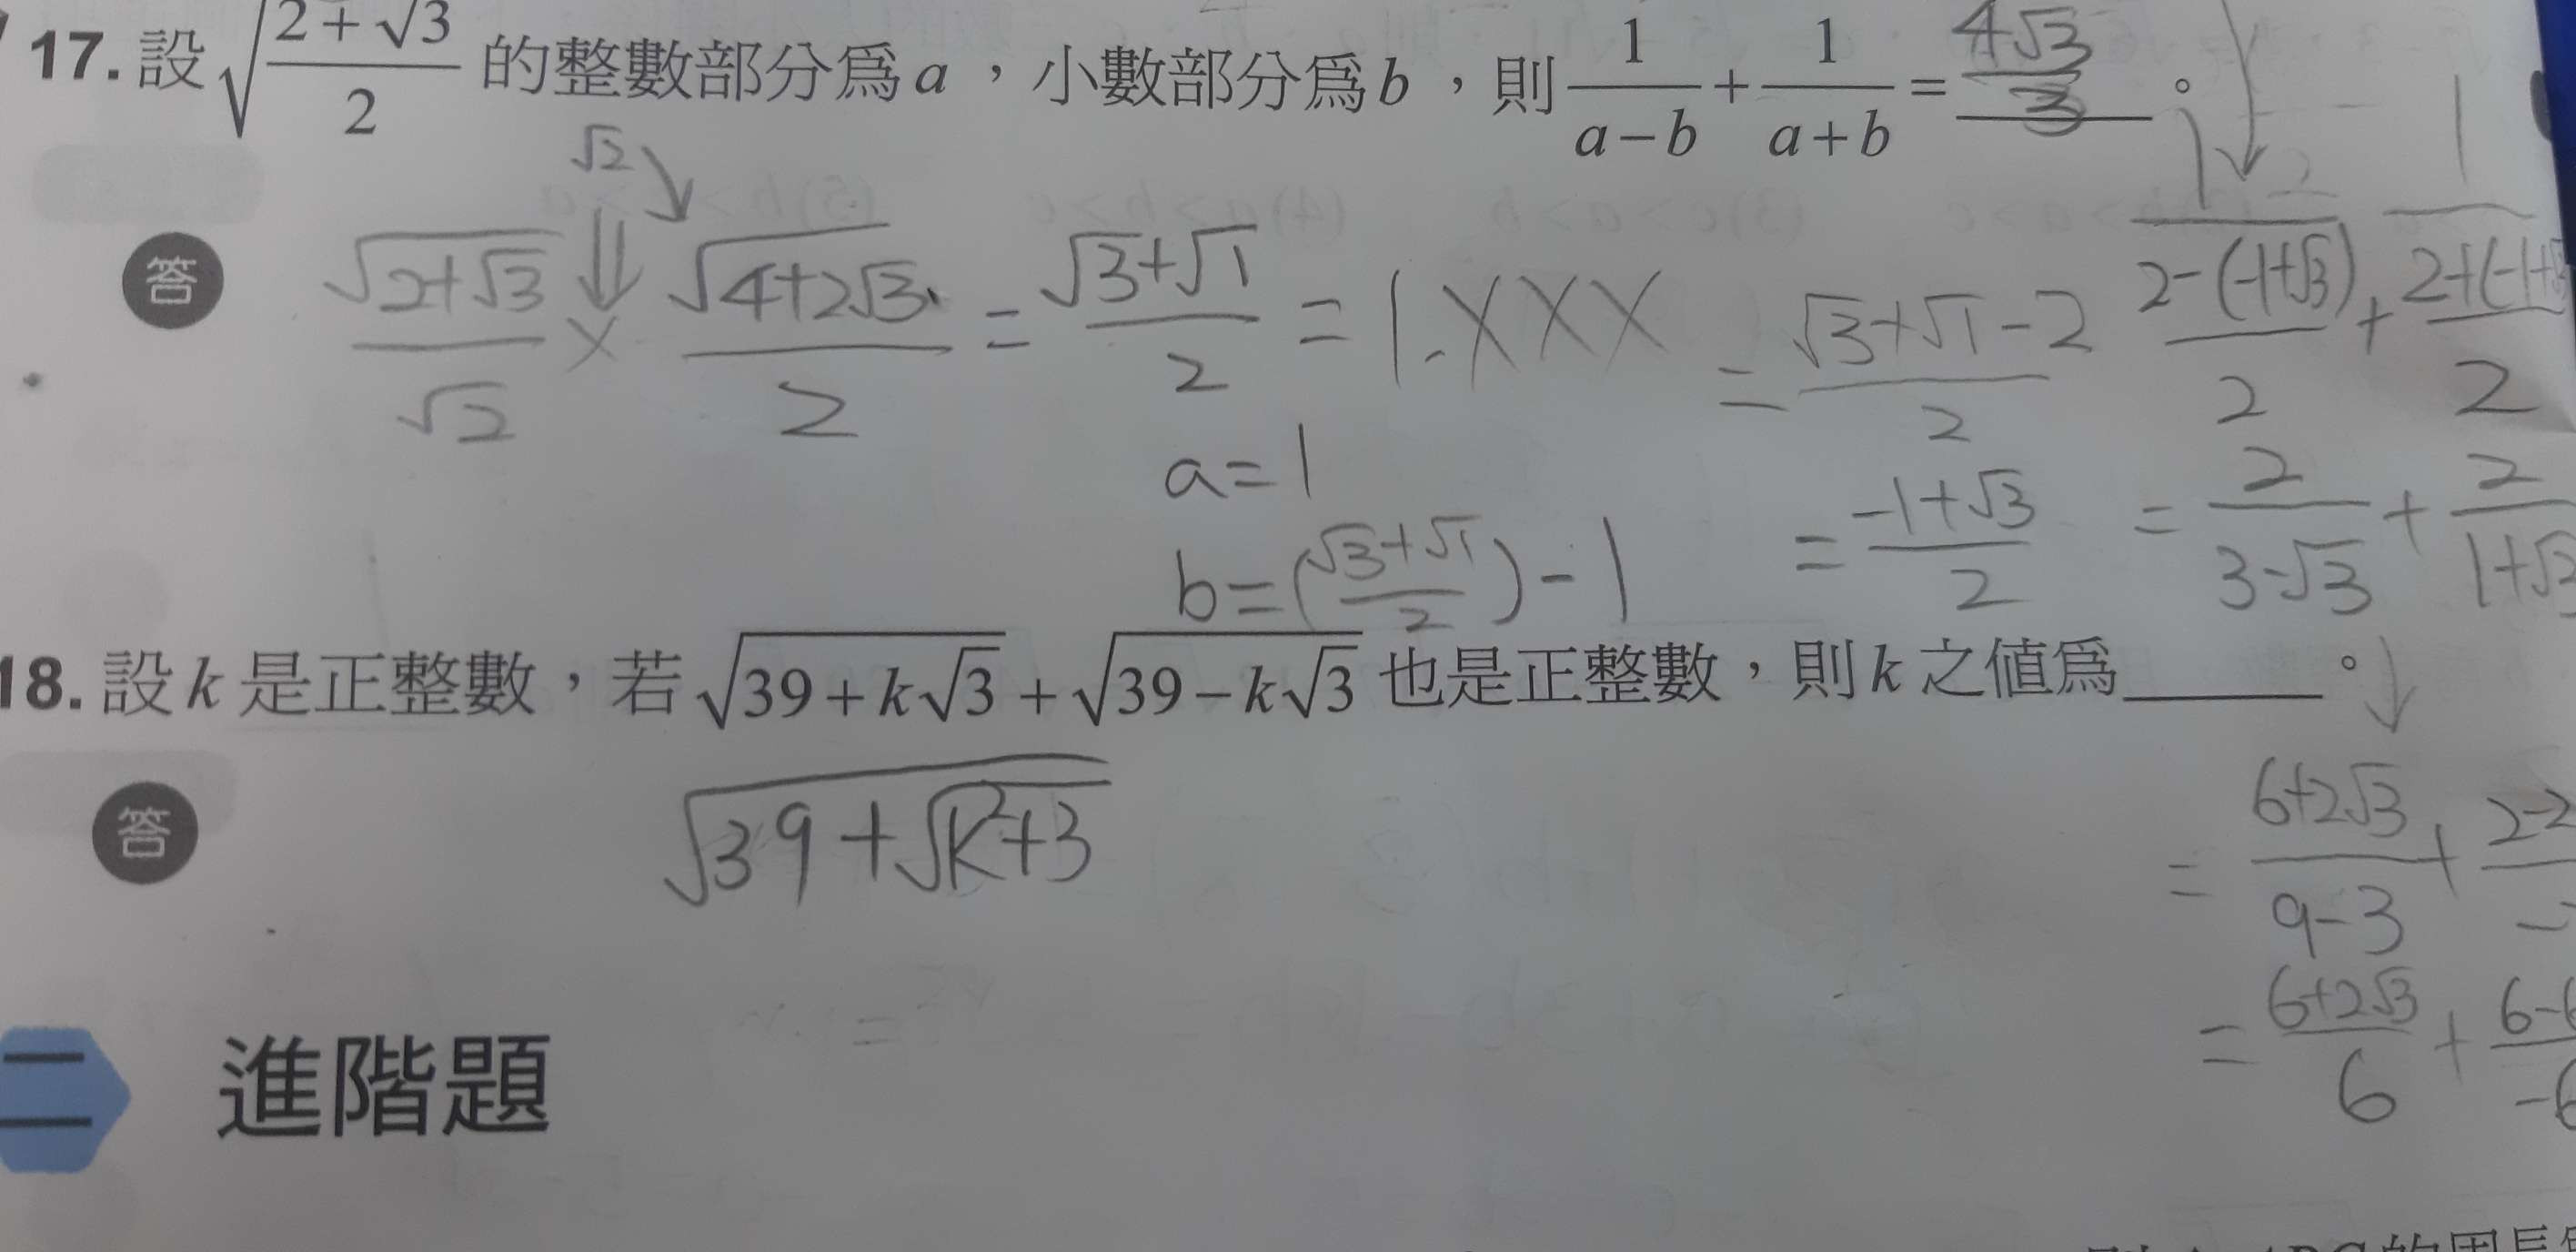 17. 設√((2+√3)/2) 的整數部分為a，小數部分為b，則 1/(a−b) + 1/(a+b) = 4√3/3 。
√2
答 √(2+√3)/√2 × √(4+2√3)/2 = (√3+√1)/2 = 1.XXX = (√3+√1-2)/2
1/((2-(-1+√3))/2) + 1/((2+(-1+√3
a=1
= (-1+√3)/2
= 2/(3-√3) + 2/(1+√3
b=((√3+√1)/2)-1
18. 設k是正整數，若 √(39+k√3) + √(39−k√3) 也是正整數，則k之值為______。
答 √(39+√(k²+3))
= (6+2√3)/(9-3) + 2-2
= (6+2√3)/6 + 6-6/-6
二 進階題